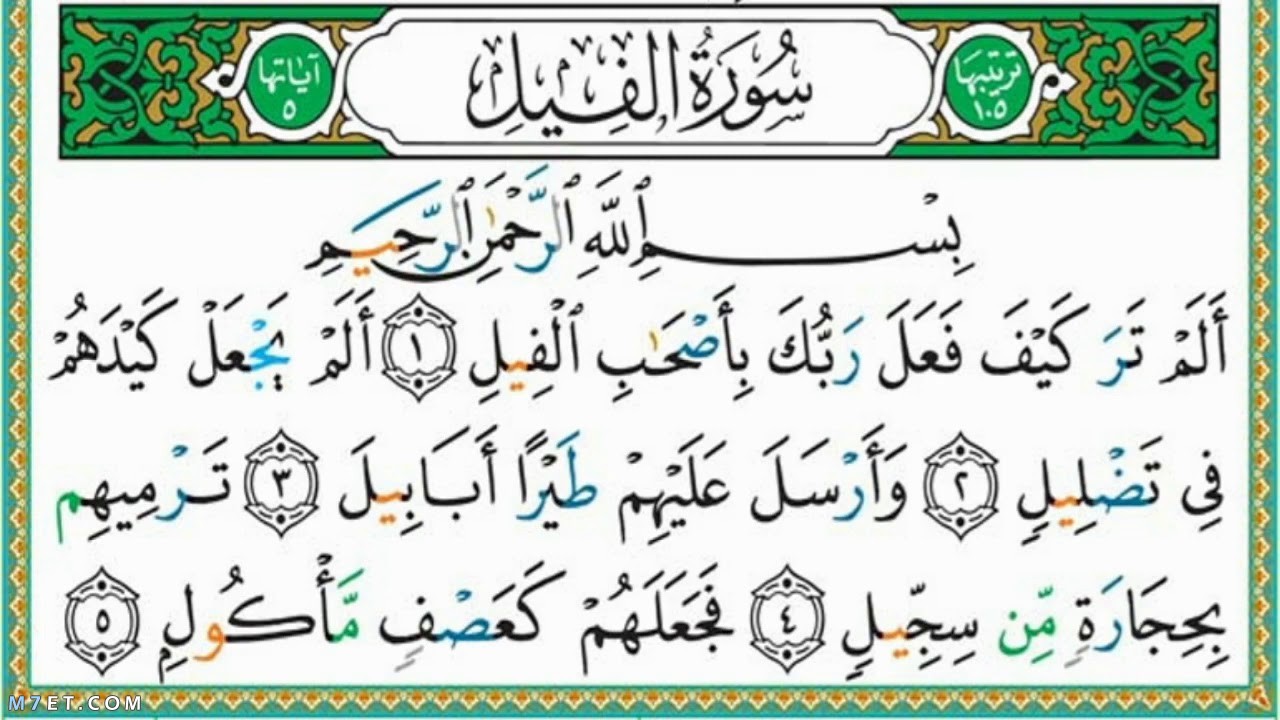 ترتيبها ١٠٥ سُورَةُ الفِيلِ آياتها ٥
بِسْمِ ٱللَّهِ ٱلرَّحْمَٰنِ ٱلرَّحِيمِ
أَلَمْ تَرَ كَيْفَ فَعَلَ رَبُّكَ بِأَصْحَٰبِ ٱلْفِيلِ ١ أَلَمْ يَجْعَلْ كَيْدَهُمْ
فِي تَضْلِيلٍ ٢ وَأَرْسَلَ عَلَيْهِمْ طَيْرًا أَبَابِيلَ ٣ تَرْمِيهِم
بِحِجَارَةٍ مِّن سِجِّيلٍ ٤ فَجَعَلَهُمْ كَعَصْفٍ مَّأْكُولٍ ٥
M7ET.COM